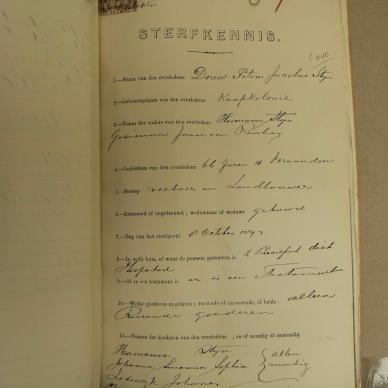 STERFKENNIS.
1.—Naam van den overledene Douw Petrus Jacobus Steyn
2.—Geboorteplaats van den overledene Kaapkolonie
3.—Naam der ouders van den overledene Hermanus Steyn
4.—Ouderdom van den overledene 66 Jaren 4 Maanden
5.—Beroep veeboer en Landbouwer
6.—Getrouwd of ongetrouwd; weduwnaar of weduwe gehuwd
7.—Dag van het sterfgeval 8 October
8.—In welk huis, of waar de persoon gestorven is
Hoopstad
9.—Of er een testament is er is een Testament
10.—Welke goederen nagelaten; roerende of onroerende, of beide alleen
Roerende goederen
11.—Namen der kinderen van den overledene, en of mondig of onmondig.
Hermanus Steyn
Johanna Susanna Sophia allen mondig
Lodewyk Johannes